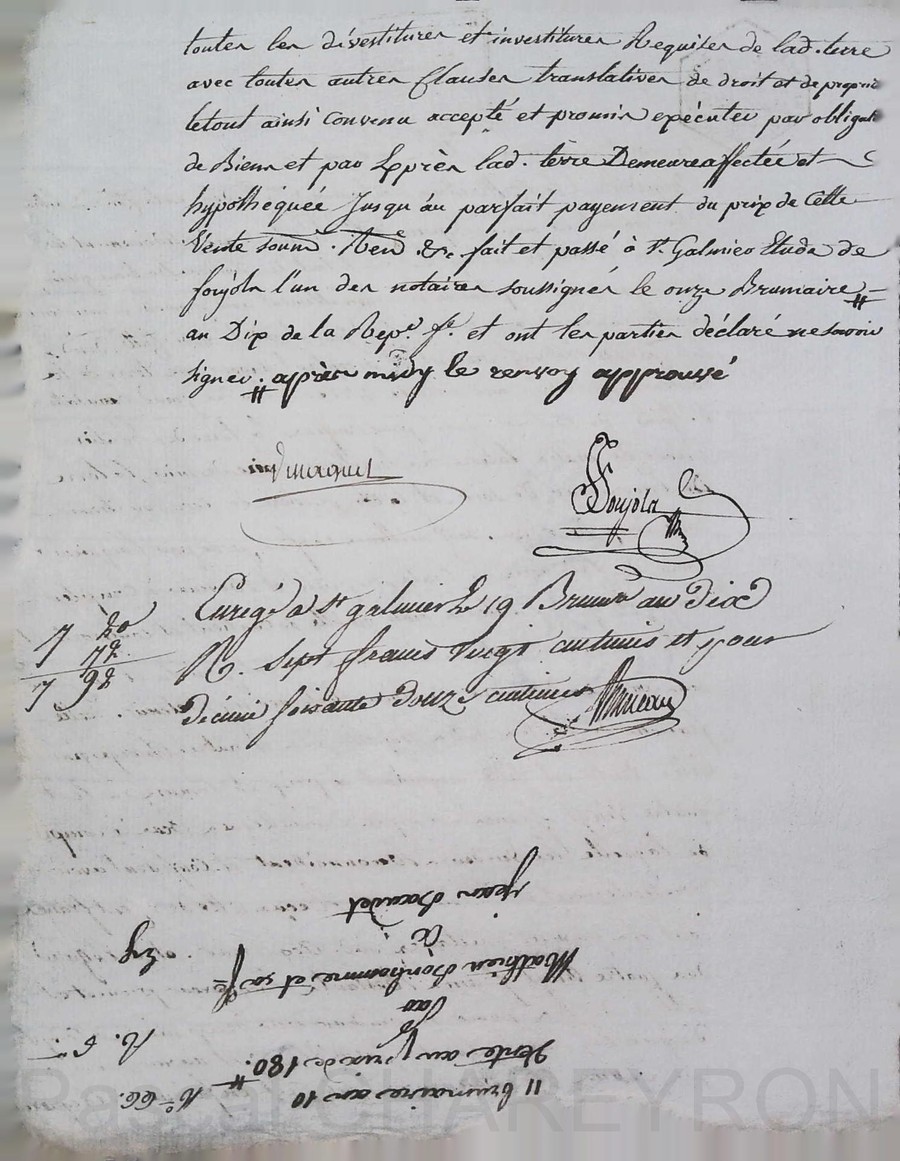 toutes les dévestitures et investitures Requises de lad. terre
avec toutes autres Clauses translatives de droit et de proprié
letout ainsi convenu accepté et promis exécuter par obligat
de Biens et par Exprès lad. terre Demeure affectée et
hypothéquée Jusqu'au parfait payement du prix de Cette
Vente soum. Ren. &c. fait et passé à St. Galmier Etude de
foujols l'un des notaires soussignés le onze Brumaire #
an Dix de la Repe. fe. et ont les parties déclaré ne savoir
signer. # après midy le renvoy approuvé
Foujols
Enregé a St galmier le 19 Brumre an dix
R. sept francs vingt centimes et pour
décime soixante douze centimes
7 20
72
7 92
11 brumaire an 10
Vente au prix de 180.#
Par
Mathieu Bonhomme et sa fe
à
jean
N.° 66.